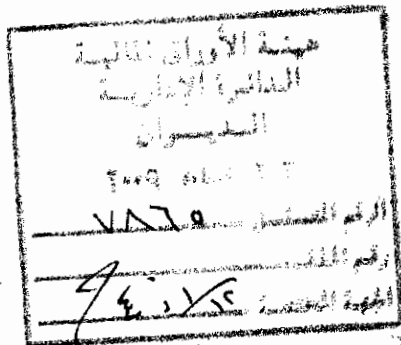 هيئة الأوراق المالية
الدائرة الإدارية
الديوان
٢٠٠٩
الرقم المتسلسل ٧٨٦٥
رقم الملف
الجهة المختصة